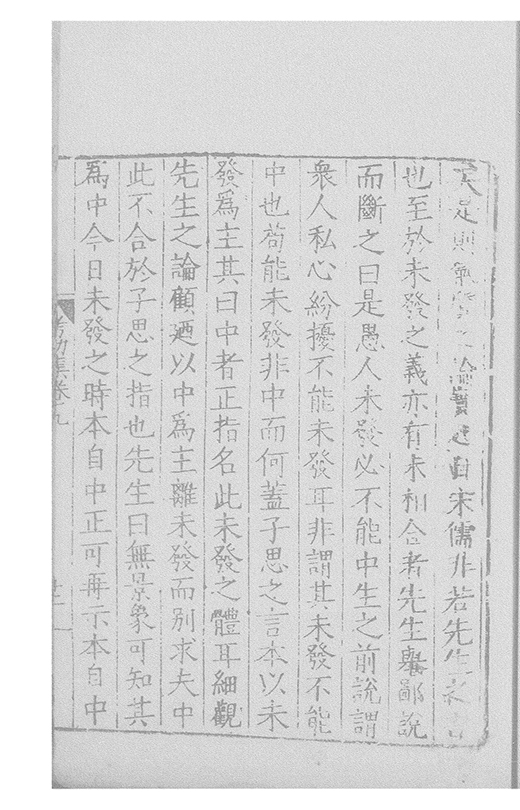 是則氣質之論實是自宋儒非若先生之言
也至於未發之義亦有未相合者先生舉鄙說
而斷之曰是愚人未發必不能中生之前說謂
衆人私心紛擾不能未發耳非謂其未發不能
中也苟能未發非中而何蓋子思之言本以未
發爲主其曰中者正指名此未發之體耳細觀
先生之論顧廼以中爲主離未發而別求夫中
此不合於子思之指也先生曰無景象可知其
爲中今日未發之時本自中正可再示本自中
卷九